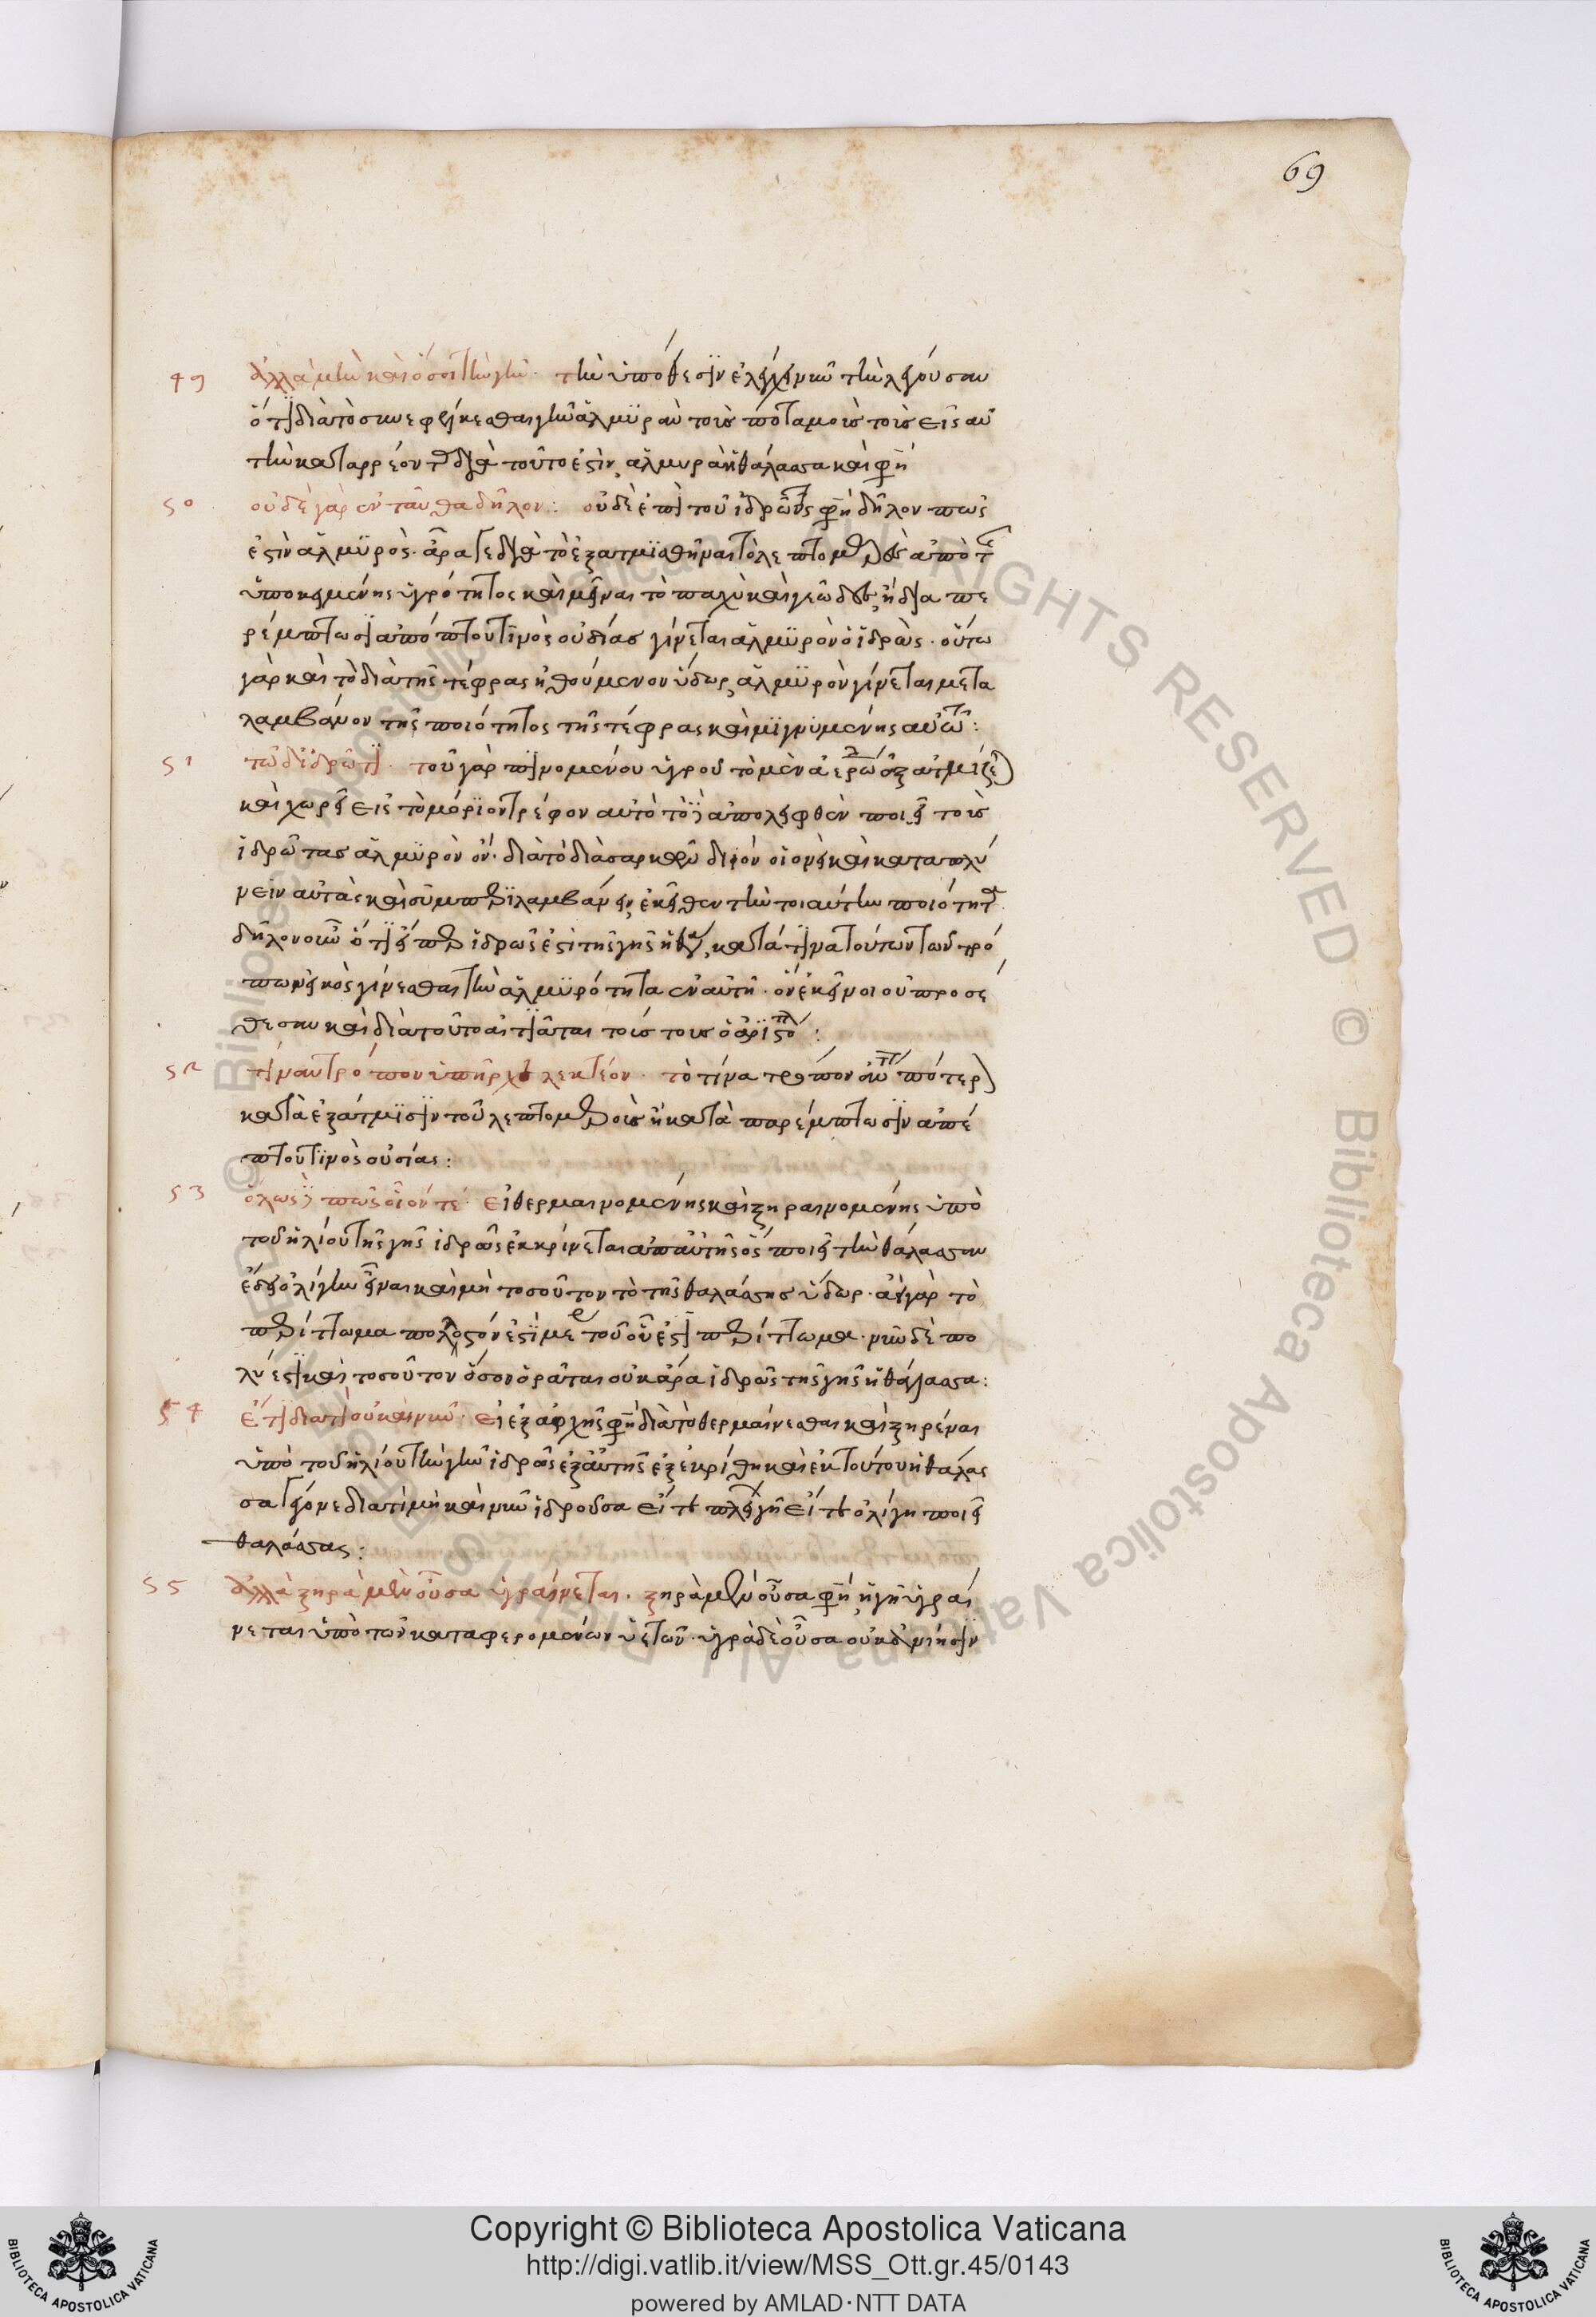 69
49 ἀλλὰ μὴν καὶ ὅσοι τὴν γῆν· τὴν ὑπόθεσιν ἐλέγχει νῦν τὴν λέγουσαν
ὅτι διὰ τὸ συνεφέλκεσθαι γῆν ἁλμυρὰν τοῖς ποταμοῖς τοῖς εἰς αὐ
τὴν καταρρέουσι διὰ τοῦτο ἐστὶν ἁλμυρὰ ἡ θάλασσα καὶ φησὶ
50 οὐδὲ γὰρ ἐνταῦθα δῆλον: οὐδὲ ἐπὶ τοῦ ἱδρῶτος φησὶ δῆλον πῶς
ἐστὶν ἁλμυρός· ἆρά γε διὰ τὸ ἐξατμισθῆναι τὸ λεπτομερὲς ἀπὸ τῆς
ὑποκειμένης ὑγρότητος καὶ μεῖναι τὸ παχὺ καὶ γεῶδες, ἢ διὰ πα
ρέμπτωσιν ἀπέπτου τινὸς οὐσίας γίνεται ἁλμυρὸν ὁ ἱδρώς· οὕτω
γὰρ καὶ τὸ διὰ τῆς τέφρας ἠθούμενον ὕδωρ, ἁλμυρὸν γίνεται μετα
λαμβάνον τῆς ποιότητος τῆς τέφρας καὶ μιγνυμένης αὐτῶ:
51 τῶ δ' ἱδρῶτι· τοῦ γὰρ πινομένου ὑγροῦ τὸ μὲν ἐξατμίζεται
καὶ χωρεῖ εἰς τὸ μόριον τρέφον αὐτὸ τὸ δὲ ἀπολειφθὲν ποιεῖ τοὺς
ἱδρῶτας ἁλμυρὸν ὄν· διὰ τὸ διὰ σαρκῶν διϊὸν οἱονεὶ καὶ καταπλύ
νειν αὐτὰς καὶ συμπεριλαμβάνειν ἐκεῖθεν τὴν τοιαύτην ποιότητα
δῆλον οὖν ὅτι εἴπερ ἱδρώς ἐστι τῆς γῆς ἡ θάλασσα, κατά τινα τούτων τῶν τρό
πων εἰκὸς γίνεσθαι τὴν ἁλμυρότητα ἐν αὐτῆ· ὃν ἐκεῖνοι οὐ προσέ
θεσαν καὶ διὰ τοῦτο αἰτιᾶται τούτους ὁ ἀριστοτέλης:
52 τίνα τρόπον ὑπῆρχε λεκτέον· τὸ τίνα τρόπον πότερον
κατὰ ἐξάτμισιν τοῦ λεπτομεροῦς ἢ κατὰ παρέμπτωσιν ἀπέ
πτου τινὸς οὐσίας:
53 ὅλως δὲ πῶς οἷόν τε· εἰ θερμαινομένης καὶ ξηραινομένης ὑπὸ
τοῦ ἡλίου τῆς γῆς ἱδρὼς ἐκκρίνεται ἀπ' αὐτῆς ὃς ποιεῖ τὴν θάλασσαν
ἔδει ὀλίγην εἶναι καὶ μὴ τοσοῦτον τὸ τῆς θαλάσσης ὕδωρ· ἀεὶ γὰρ τὸ
περίττωμα πολλοστόν ἐστι μέρος τοῦ οὗ ἐστι περίττωμα· νῦν δὲ πο
λύ ἐστι καὶ τοσοῦτον ὅσον ὁρᾶται οὐκ ἄρα ἱδρὼς τῆς γῆς ἡ θάλασσα:
54 ἔτι διατί οὐ καὶ νῦν· εἰ ἐξ ἀρχῆς φησὶ διὰ τὸ θερμαίνεσθαι καὶ ξηρᾶναι
ὑπὸ τοῦ ἡλίου τὴν γῆν ἱδρὼς ἐξ αὐτῆς ἐξεκρίθη καὶ ἐκ τούτου ἡ θάλασ
σα γέγονε διατί μὴ καὶ νῦν ἱδροῦσα εἴτε πλείων εἴτε ὀλίγη ποιεῖ
θαλάσσας:
55 ἀλλὰ ξηρὰ μὲν οὖσα ὑγραίνεται· ξηρὰ μὲν οὖσα φησὶν ἡ γῆ ὑγραί
νεται ὑπὸ τῶν καταφερομένων ὑετῶν· ὑγρὰ δὲ οὖσα οὐκ ἀνίησιν
Copyright © Biblioteca Apostolica Vaticana
http://digi.vatlib.it/view/MSS_Ott.gr.45/0143
powered by AMLAD·NTT DATA
BIBLIOTECA APOSTOLICA VATICANA
BIBLIOTECA APOSTOLICA VATICANA